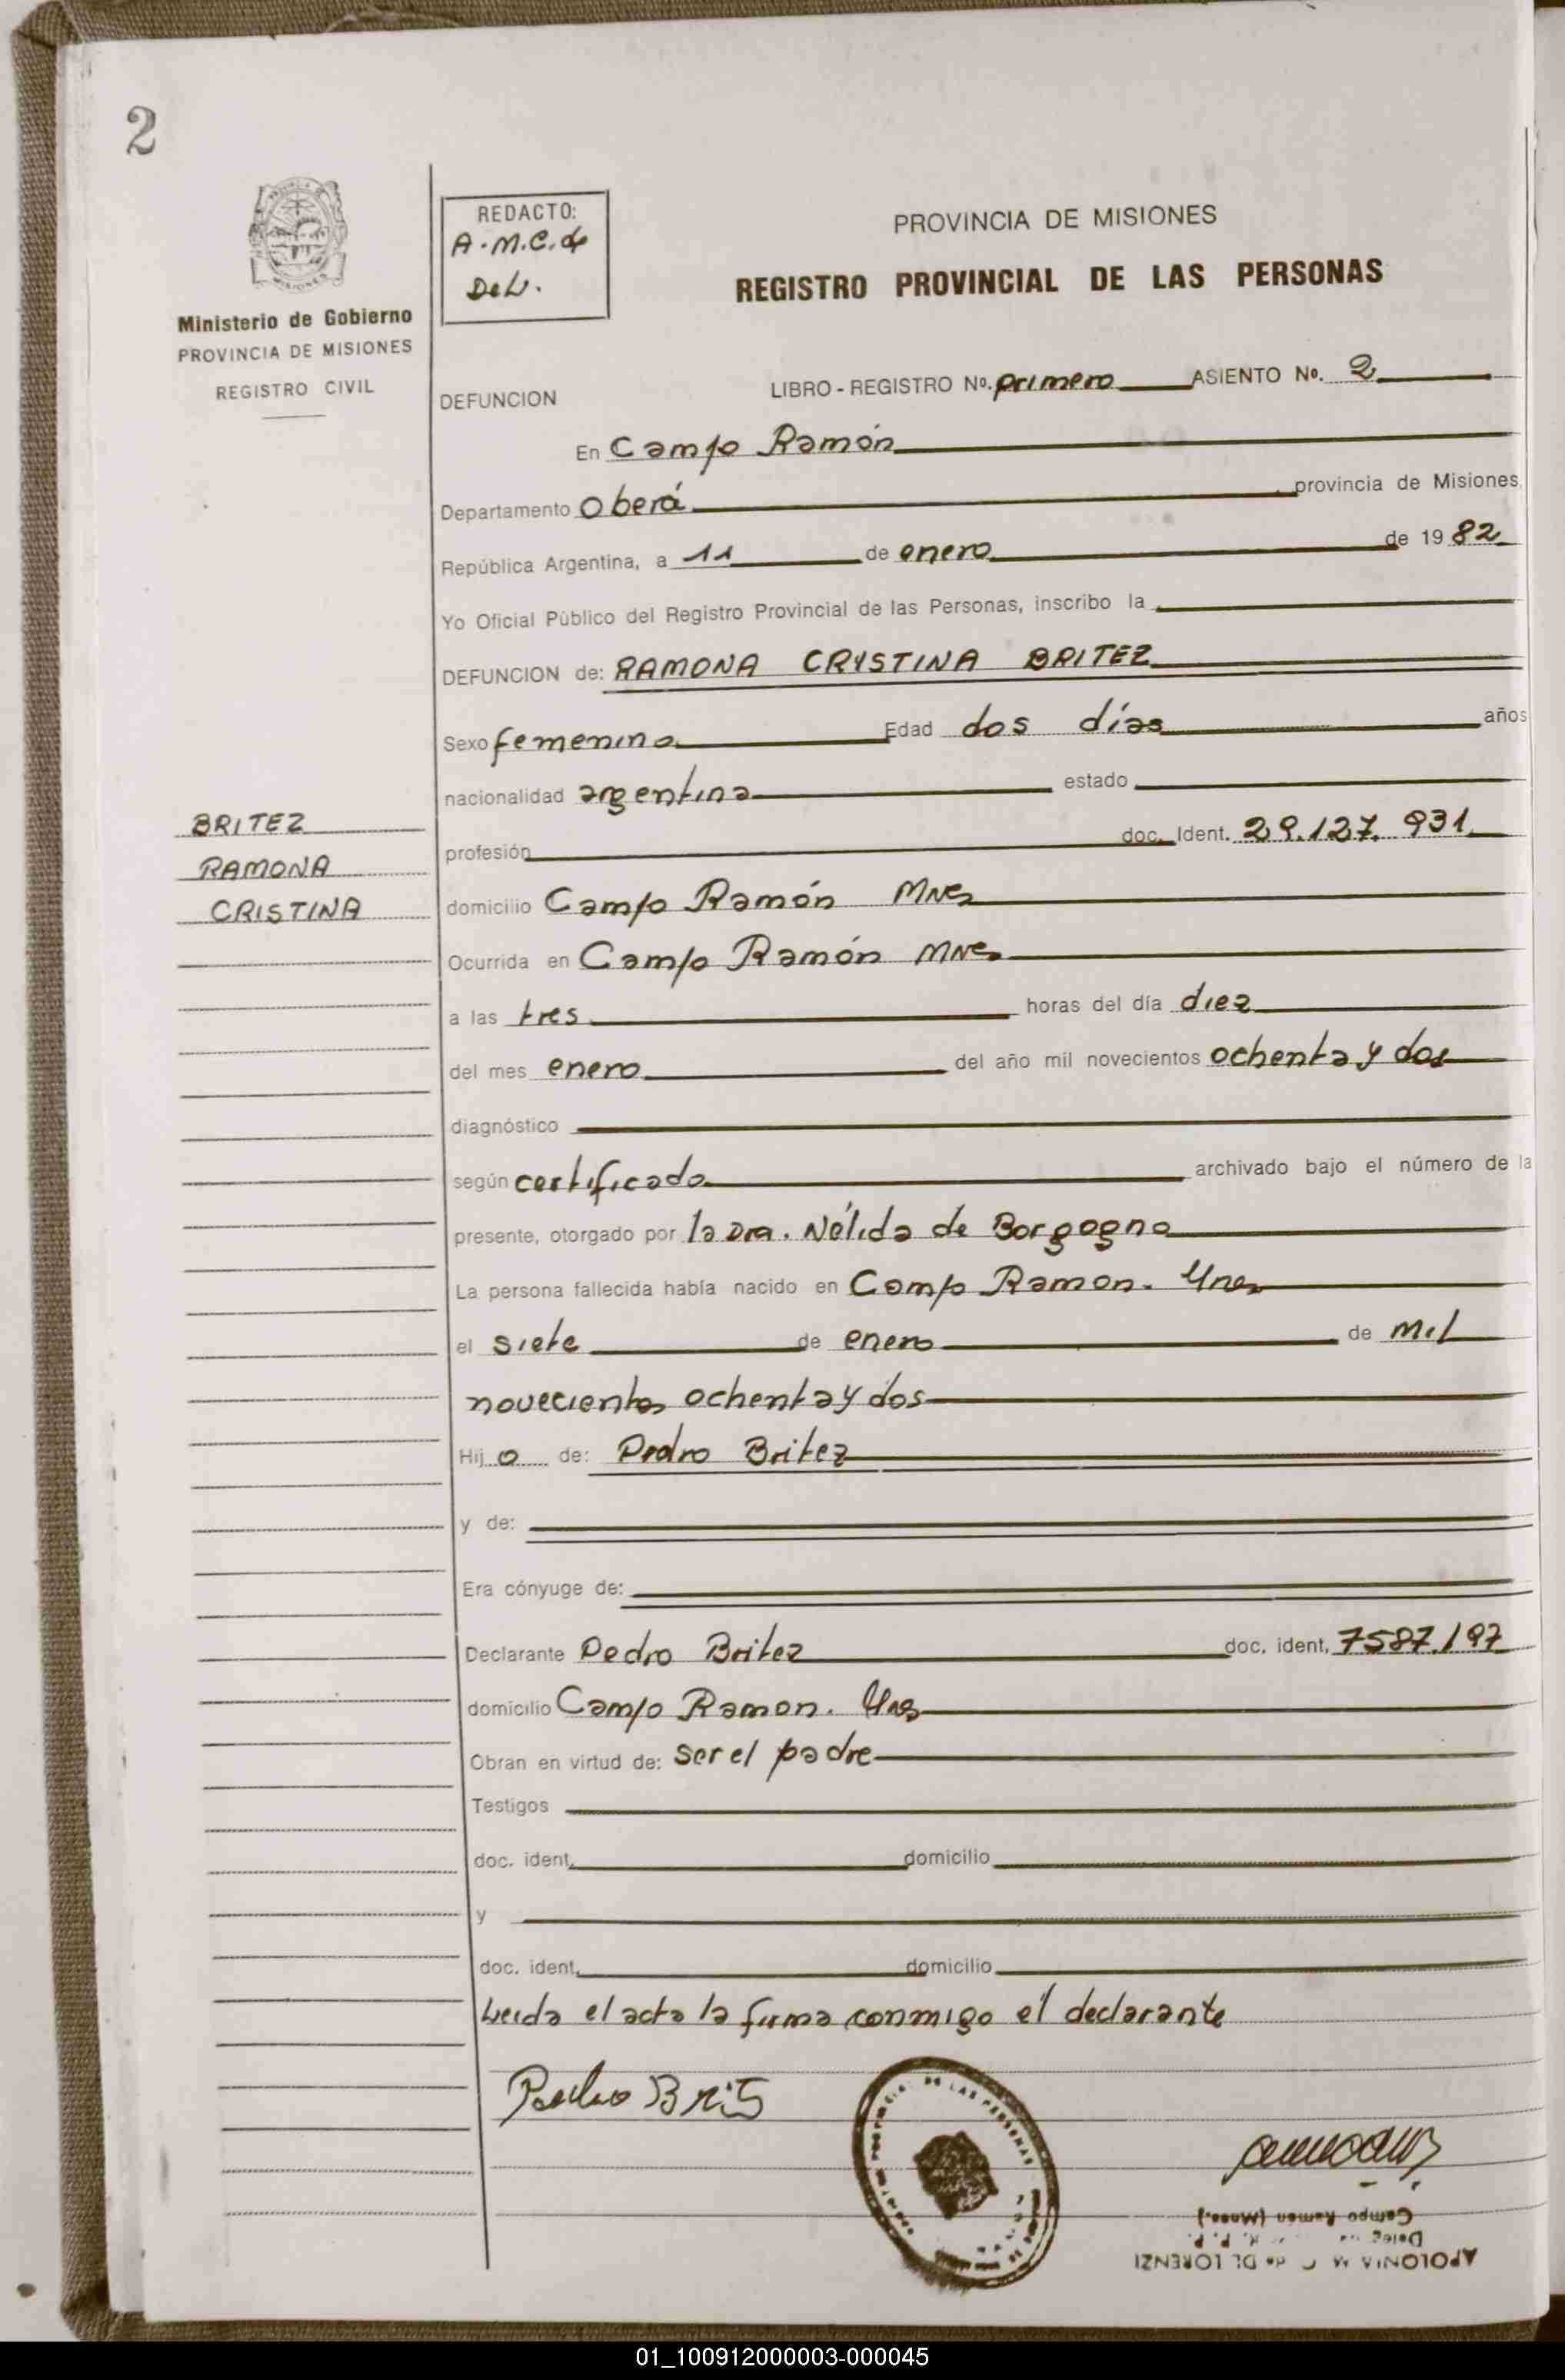 2
Ministerio de Gobierno
PROVINCIA DE MISIONES
REGISTRO CIVIL
REDACTO:
A.M.C. de
DeL.
PROVINCIA DE MISIONES
REGISTRO PROVINCIAL DE LAS PERSONAS
DEFUNCION LIBRO - REGISTRO Nº. primero ASIENTO Nº. 2
En Campo Ramón
Departamento Oberá, provincia de Misiones,
República Argentina, a 11 de enero de 1982
Yo Oficial Público del Registro Provincial de las Personas, inscribo la
DEFUNCION de: RAMONA CRYSTINA BRITEZ
Sexo femenino Edad dos días años
nacionalidad argentina estado
BRITEZ
RAMONA
CRISTINA
profesión doc. Ident. 29.127.931
domicilio Campo Ramón Mnes
Ocurrida en Campo Ramón Mnes
a las tres horas del día diez
del mes enero del año mil novecientos ochenta y dos
diagnóstico
según certificado archivado bajo el número de la
presente, otorgado por la Dra. Nélida de Borgogno
La persona fallecida había nacido en Campo Ramon. Mnes
el siete de enero de mil
novecientos ochenta y dos
Hijo de: Pedro Britez
y de:
Era cónyuge de:
Declarante Pedro Britez doc. ident, 7587.197
domicilio Campo Ramon. Mnes
Obran en virtud de: ser el padre
Testigos
doc. ident, domicilio
y
doc. ident, domicilio
Leida el acta la firma conmigo el declarante
Pedro Brit
DE LAS PERSONAS
Campo Ramon (Mnes.)
Deleg
APOLONIA M. C. de DE LORENZI
01_100912000003-000045